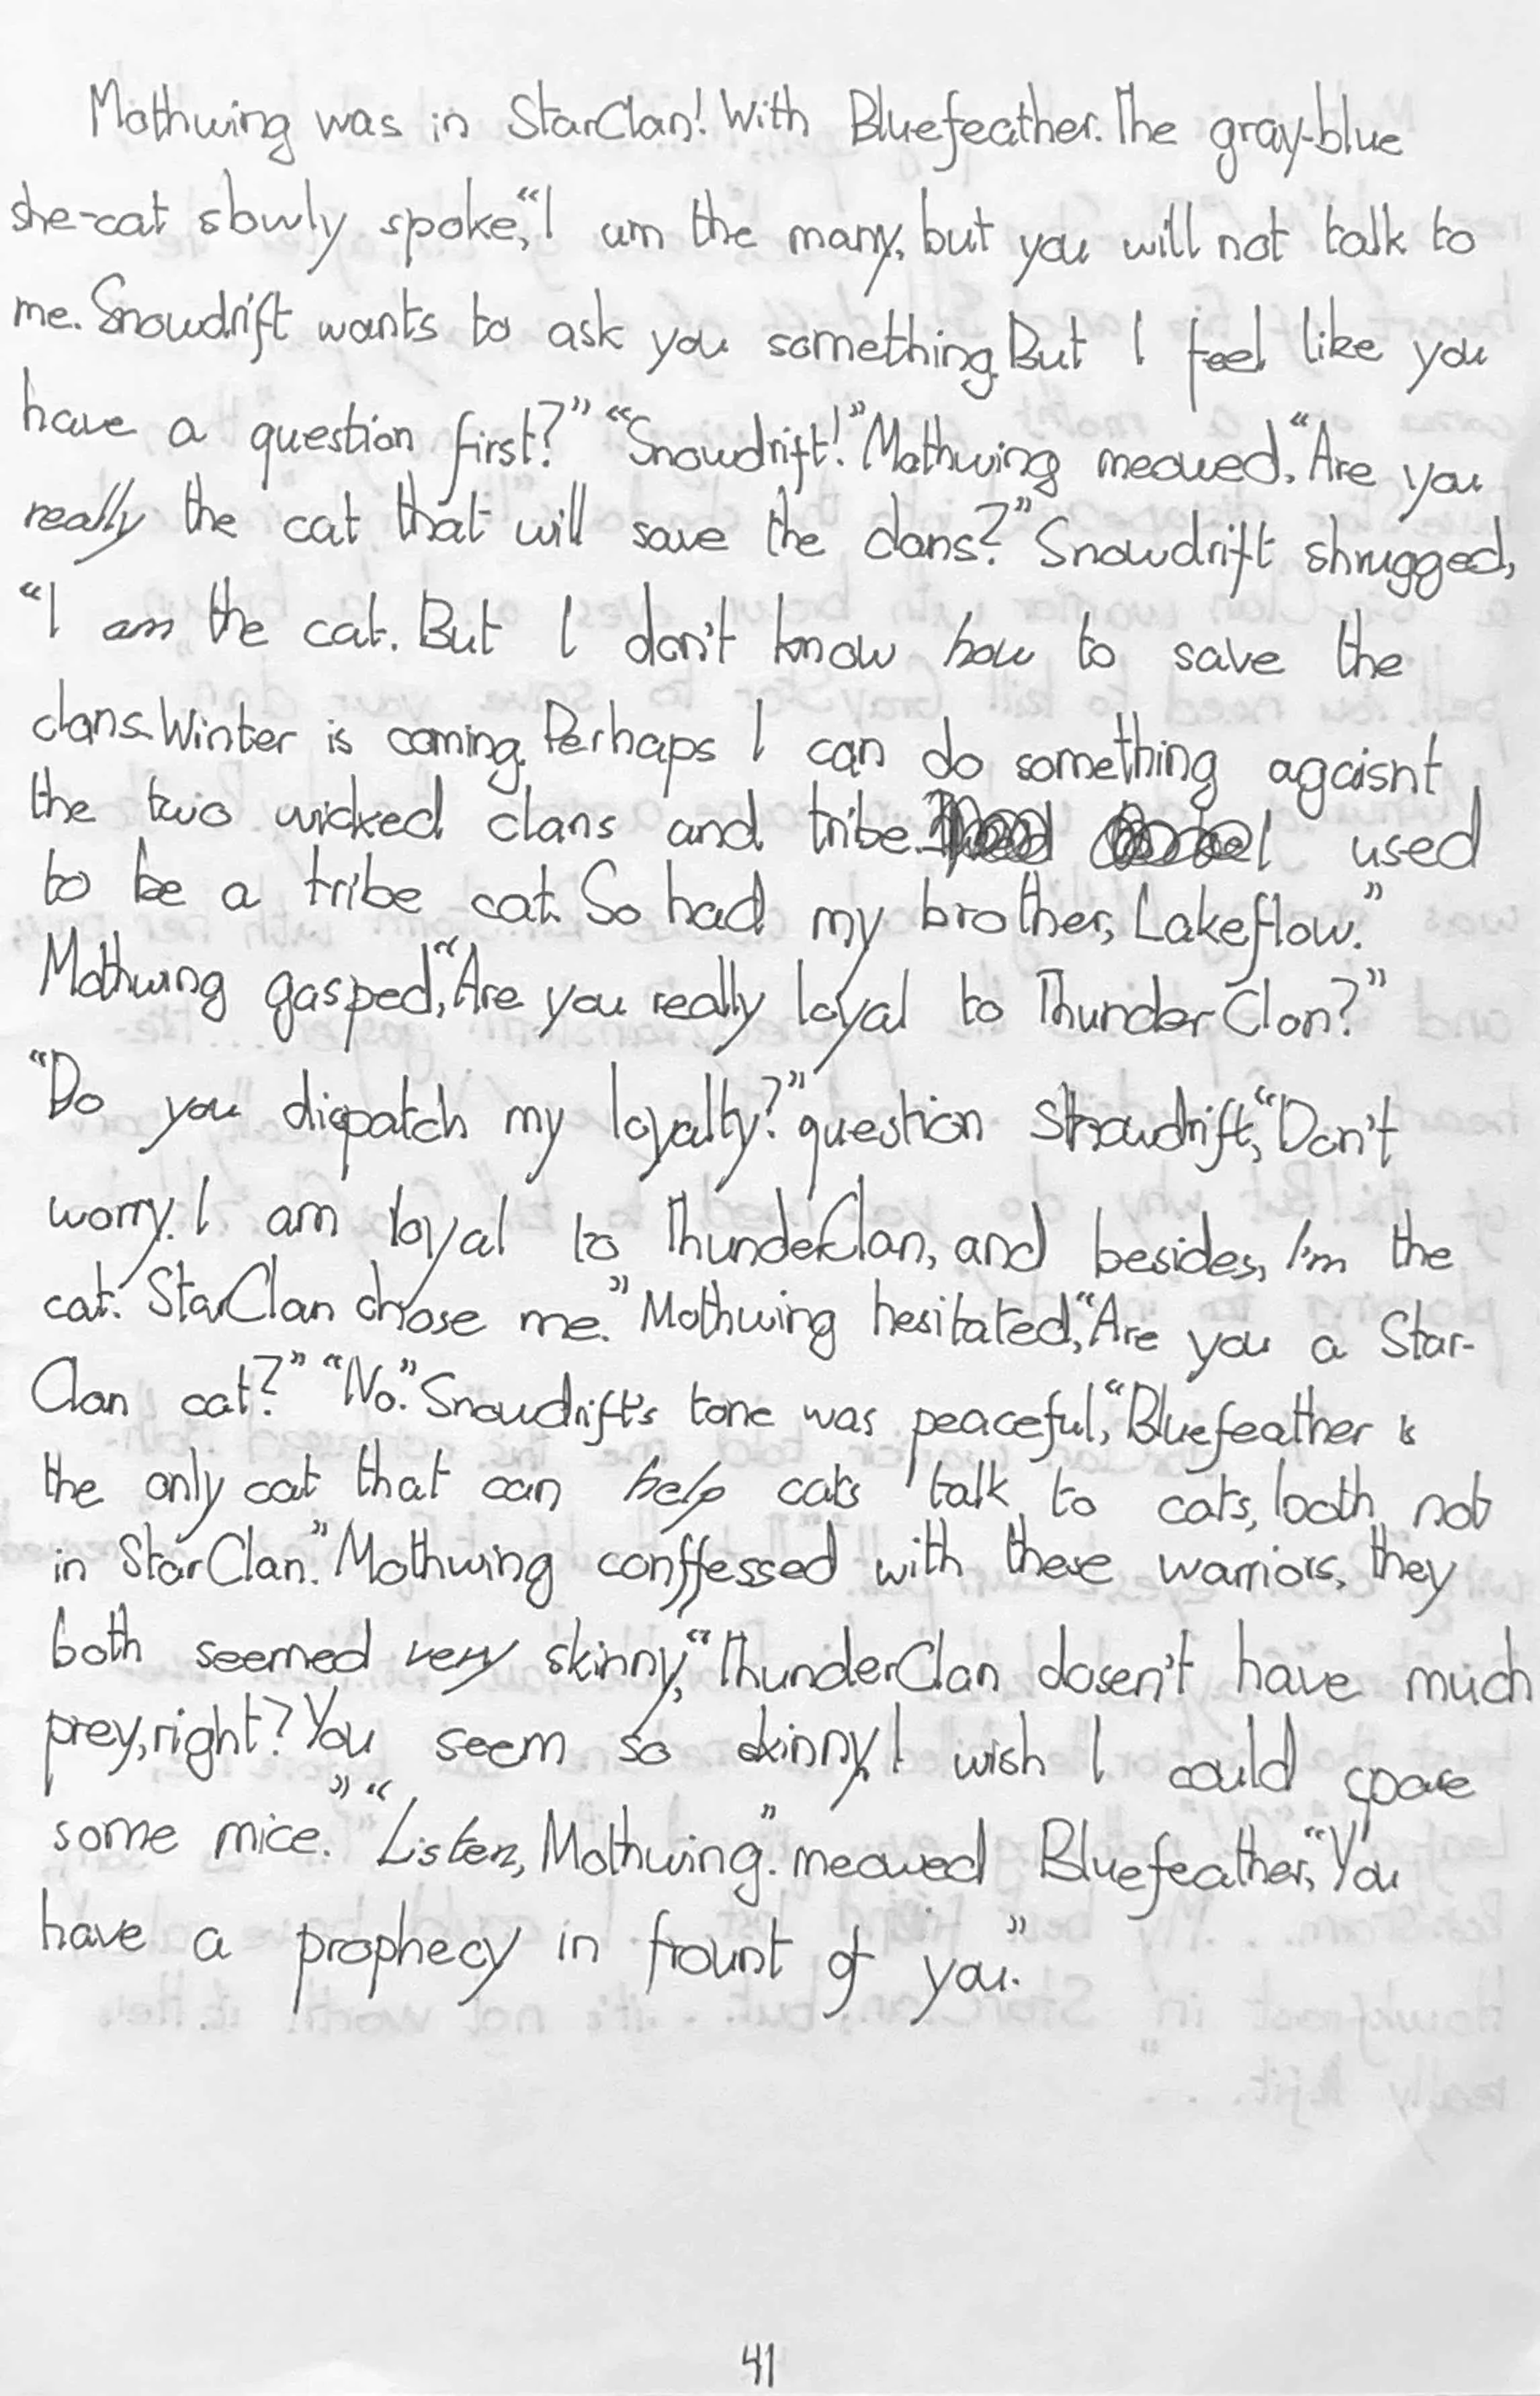 Mothwing was in StarClan! With Bluefeather. The gray-blue
she-cat slowly spoke, "I am the many, but you will not talk to
me. Snowdrift wants to ask you something. But I feel like you
have a question first?" "Snowdrift!" Mothwing meowed, "Are you
really the cat that will save the clans?" Snowdrift shrugged,
"I am the cat. But I don't know how to save the
clans. Winter is coming. Perhaps I can do something agaisnt
the two wicked clans and tribe. I used
to be a tribe cat. So had my brother, Lakeflow."
Mothwing gasped, "Are you really loyal to ThunderClan?"
"Do you dispatch my loyalty?" question Snowdrift, "Don't
worry. I am loyal to ThunderClan, and besides, I'm the
cat. StarClan chose me." Mothwing hesitated, "Are you a Star-
Clan cat?" "No." Snowdrift's tone was peaceful, "Bluefeather is
the only cat that can help cats talk to cats, both not
in StarClan." Mothwing conffessed with these warriors, they
both seemed very skinny, "ThunderClan dosen't have much
prey, right? You seem so skinny, I wish I could spare
some mice." "Listen, Mothwing." meowed Bluefeather, "You
have a prophecy in frount of you."
41